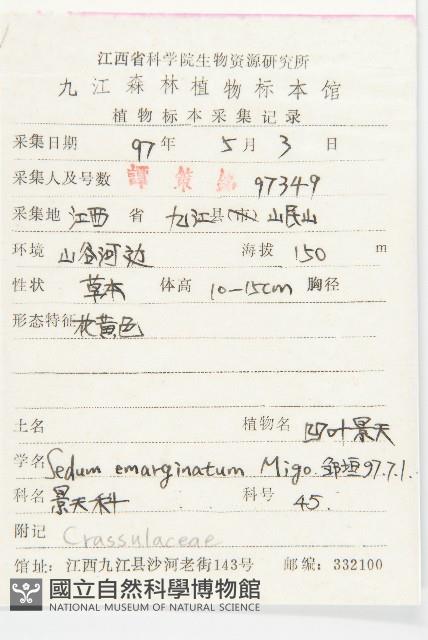 江西省科学院生物资源研究所
九江森林植物标本馆
植物标本采集记录
采集日期 97年 5月 3 日
采集人及号数 譚策銘 97349
采集地 江西 省 九江县(市) 山民山
环境 山谷河边 海拔 150 m
性状 草本 体高 10-15cm 胸径
形态特征 花黄色
土名 植物名 凹叶景天
学名 Sedum emarginatum Migo. 邹垣 97.7.1.
科名 景天科 科号 45.
附记 Crassulaceae
馆址: 江西九江县沙河老街143号 邮编: 332100
國立自然科學博物館
NATIONAL MUSEUM OF NATURAL SCIENCE